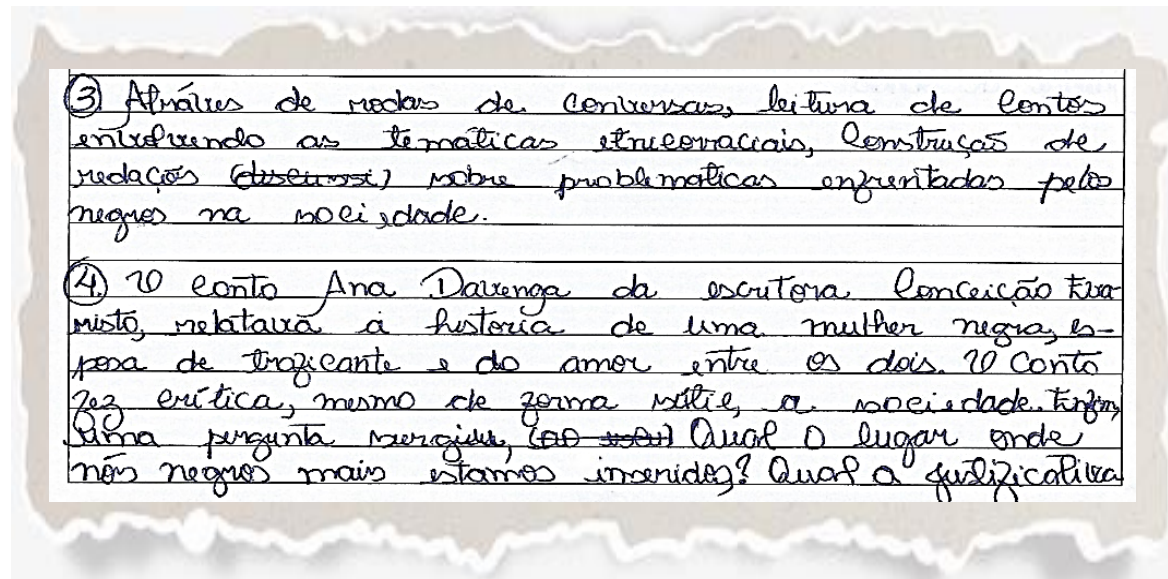 ③ Através de rodas de conversas, leitura de contos
envolvendo as temáticas etnicorraciais, Construção de
redações (discurssi) sobre problematicas enfrentadas pelos
negros na sociedade.
④ O conto Ana Davenga da escritora Conceição Eva-
risto, relatava a historia de uma mulher negra, es-
posa de traficante e do amor entre os dois. O conto
fez crítica, mesmo de forma sútil, a sociedade. Enfim,
uma pergunta surgiu, Qual o lugar onde
nós negros mais estamos inseridos? Qual a justificativa